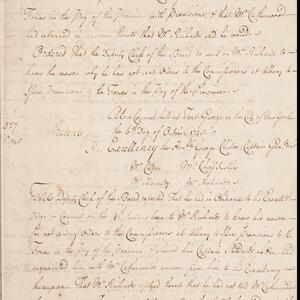 Forces in the Pay of the Province with Provisions, & that Mr Catherwood
had returned in answer thereto that Mr Richards said he would
Ordered That the Deputy Clerk of the Board do wait on Mr Richards to
know the reason why he has not sent Orders to the Commissioners at Albany to
give Provisions to the Forces in the Pay of the Province
At a Council held at Fort George in the City of New York
the 6th Day of October 1748
Present
His Excellency the Honble George Clinton Captain General &c
Mr Colden Mr Chief Justice
Mr Kennedy Mr Holland
The Deputy Clerk of the Board reported that he had in Obedience to his Excellency's
Order in Council on the Mr Richards to know his reason
for not sending Orders to the Commissioners at Albany to give Provisions to
the Forces in the Pay of the Province
acquainted him with Mr Catherwoods answer from him to his Excellency
thereupon That Mr Richards replyed thereto that he had not told Mr Catherwood